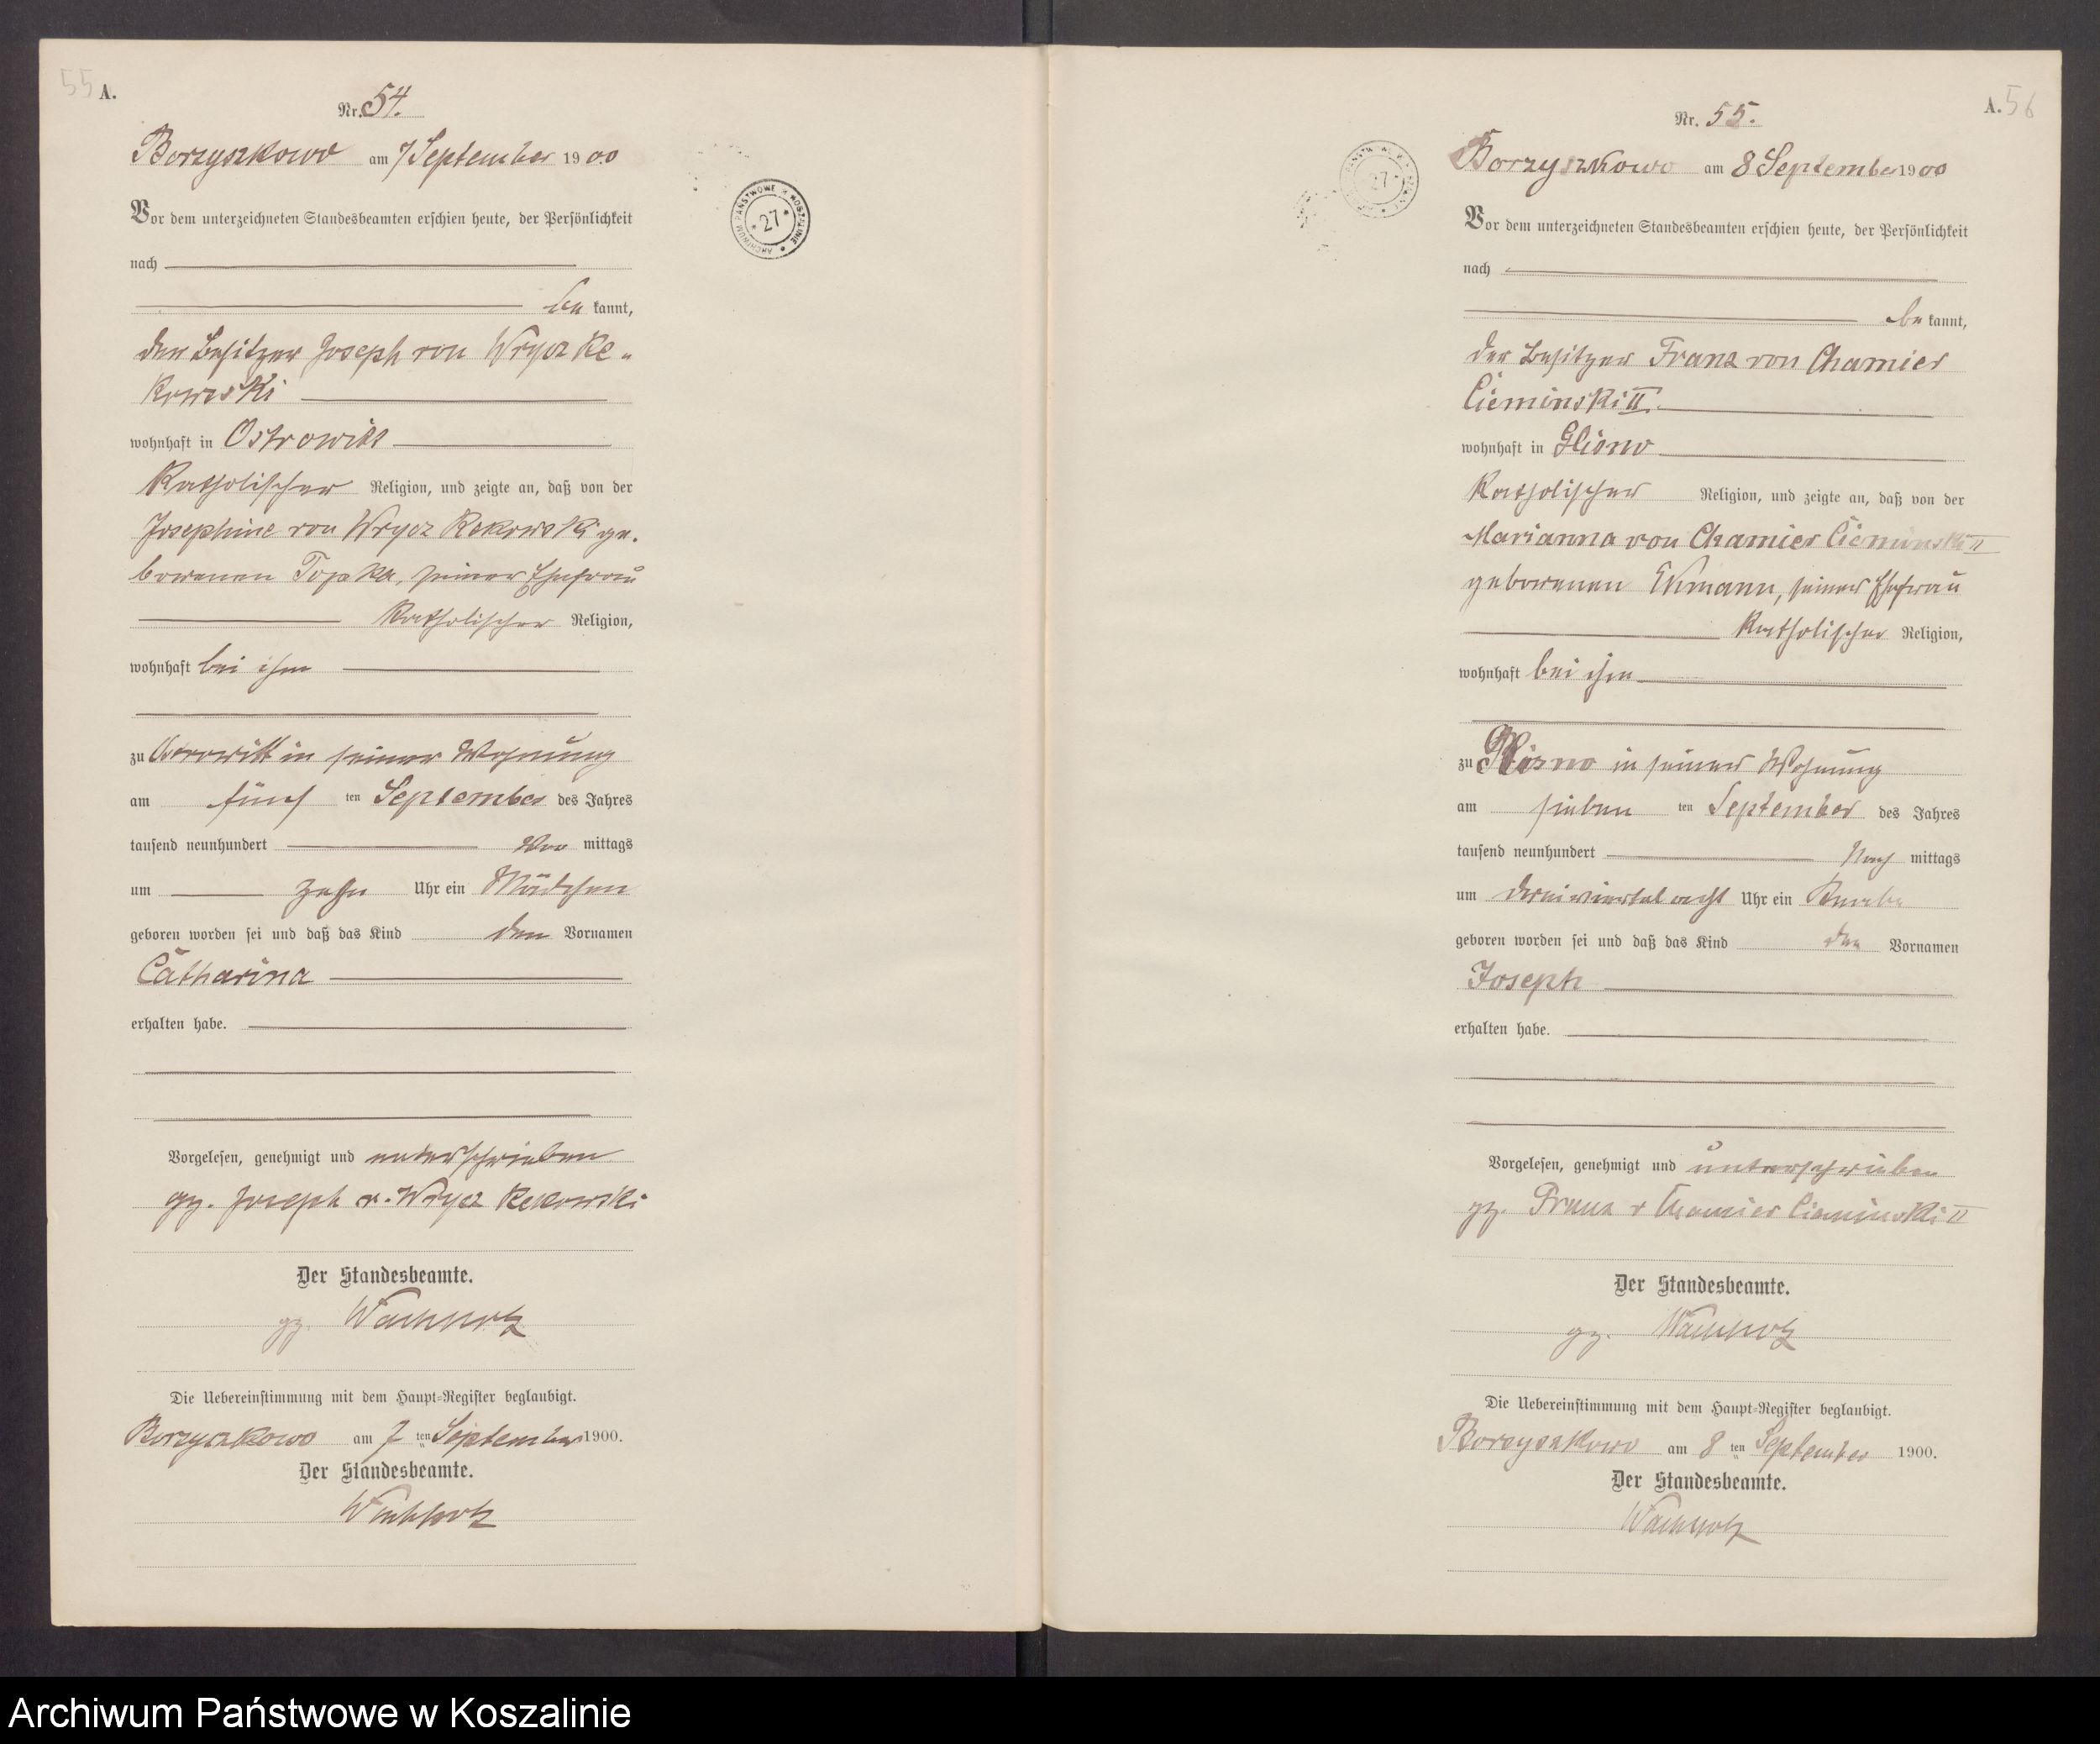 55 A.
Nr. 54.
Borzyszkowo am 7 September 1900
Vor dem unterzeichneten Standesbeamten erschien heute, der Persönlichkeit
nach
be kannt,
der Besitzer Joseph von Wrycz Re-
kowski
wohnhaft in Ostrowitt
Katholischer Religion, und zeigte an, daß von der
Josephine von Wrycz Rekowski ge-
borenen Topka, seiner Ehefrau
Katholischer Religion,
wohnhaft bei ihm
zu Ostrowitt in seiner Wohnung
am fünf ten September des Jahres
tausend neunhundert Vor mittags
um zehn Uhr ein Mädchen
geboren worden sei und daß das Kind den Vornamen
Catharina
erhalten habe.
Vorgelesen, genehmigt und unterschrieben
gz. Joseph v. Wrycz Rekowski
Der Standesbeamte.
gz. Wachholz
Die Uebereinstimmung mit dem Haupt-Register beglaubigt.
Borzyszkowo am 7 ten September 1900.
Der Standesbeamte.
Wachholz
ARCHIWUM PAŃSTWOWE W KOSZALINIE
* 27 *
A. 56
Nr. 55.
Borzyszkowo am 8 September 1900
Vor dem unterzeichneten Standesbeamten erschien heute, der Persönlichkeit
nach
be kannt,
der Besitzer Franz von Chamier
Cieminski II.
wohnhaft in Glisno
Katholischer Religion, und zeigte an, daß von der
Marianna von Chamier Cieminski II
geborenen , seiner Ehefrau
Katholischer Religion,
wohnhaft bei ihm
zu Glisno in seiner Wohnung
am sieben ten September des Jahres
tausend neunhundert Nach mittags
um dreiviertel acht Uhr ein Knabe
geboren worden sei und daß das Kind den Vornamen
Joseph
erhalten habe.
Vorgelesen, genehmigt und unterschrieben
gz. Franz v Chamier Cieminski II
Der Standesbeamte.
gz. Wachholz
Die Uebereinstimmung mit dem Haupt-Register beglaubigt.
Borzyszkowo am 8 ten September 1900.
Der Standesbeamte.
Wachholz
27
Archiwum Państwowe w Koszalinie